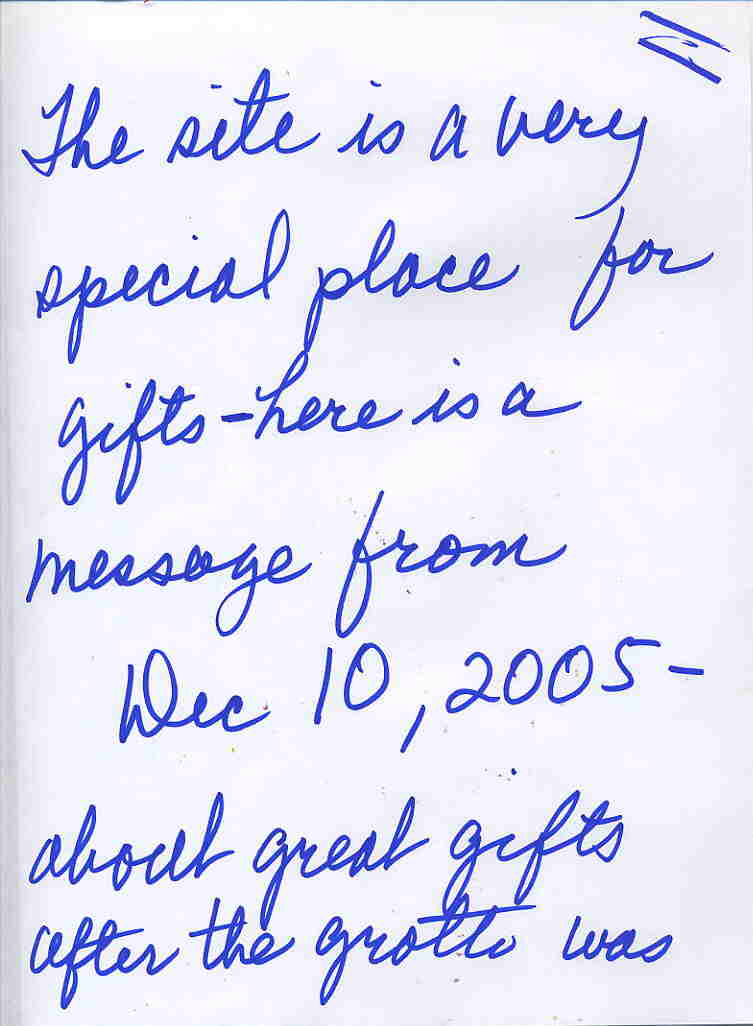 The site is a very
special place for
gifts - here is a
message from
Dec 10, 2005 -
about great gifts
after the grotto was